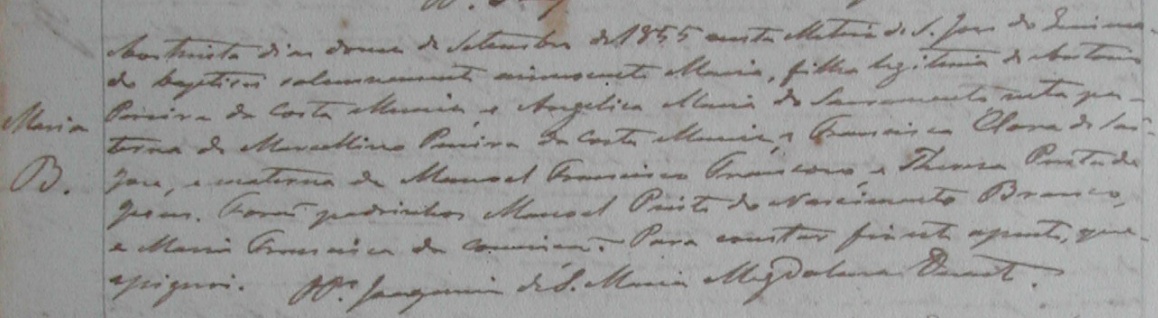 Aos trinta dias do mez de Setembro de 1855 nesta Matriz de S. Jose do
do baptisei solemnemente innocente Maria, filha legitima de Antonio
Maria
Pereira da Costa Muniz, e Angelica Maria do Sacramento neta pa-
terna de Marcellino Pereira da Costa Muniz, e Francisca Clara de São
B.
Jose, e materna de Manoel Francisco, e Thereza
Forão padrinhos Manoel Pinto do Nascimento Branco,
e Maria Francisca da. Para constar fiz este assento, que
assignei. Joaquim de S. Maria Magdalena Duarte.